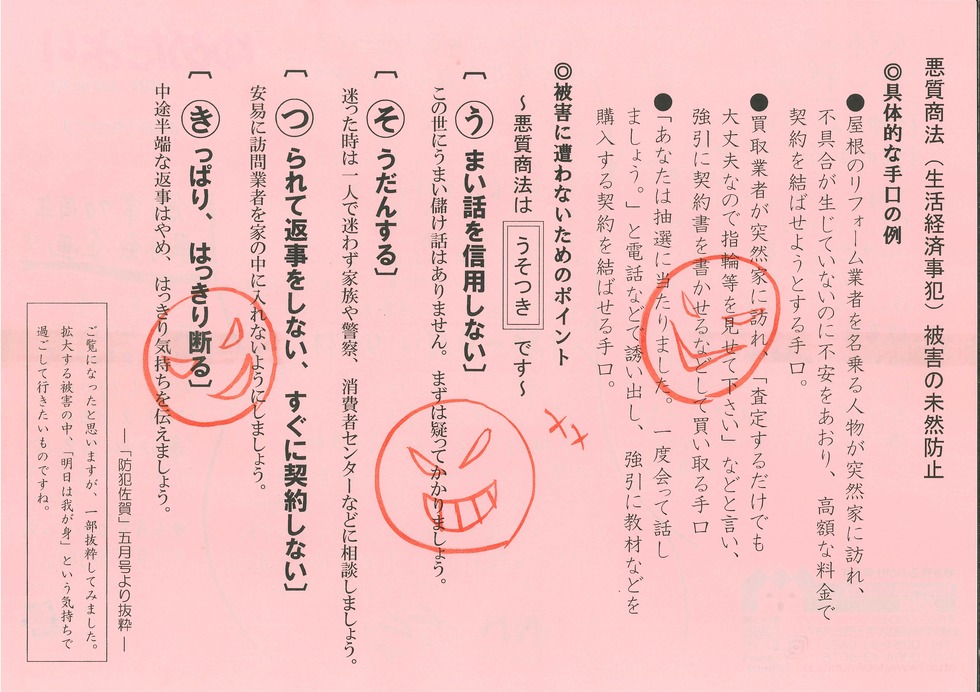 悪質商法（生活経済事犯）被害の未然防止
◎具体的な手口の例
●屋根のリフォーム業者を名乗る人物が突然家に訪れ、
不具合が生じていないのに不安をあおり、高額な料金で
契約を結ばせようとする手口。
●買取業者が突然家に訪れ、「査定するだけでも
大丈夫なので指輪等を見せて下さい」などと言い、
強引に契約書を書かせるなどして買い取る手口
●「あなたは抽選に当たりました。一度会って話し
ましょう。」と電話などで誘い出し、強引に教材などを
購入する契約を結ばせる手口。
◎被害に遭わないためのポイント
～悪質商法は うそつき です～
［う まい話を信用しない］
この世にうまい儲け話はありません。まずは疑ってかかりましょう。
［そ うだんする］
迷った時は一人で迷わず家族や警察、消費者センターなどに相談しましょう。
［つ られて返事をしない、すぐに契約しない］
安易に訪問業者を家の中に入れないようにしましょう。
［き っぱり、はっきり断る］
中途半端な返事はやめ、はっきり気持ちを伝えましょう。
―「防犯佐賀」五月号より抜粋―
ご覧になったと思いますが、一部抜粋してみました。
拡大する被害の中、「明日は我が身」という気持ちで
過ごして行きたいものですね。